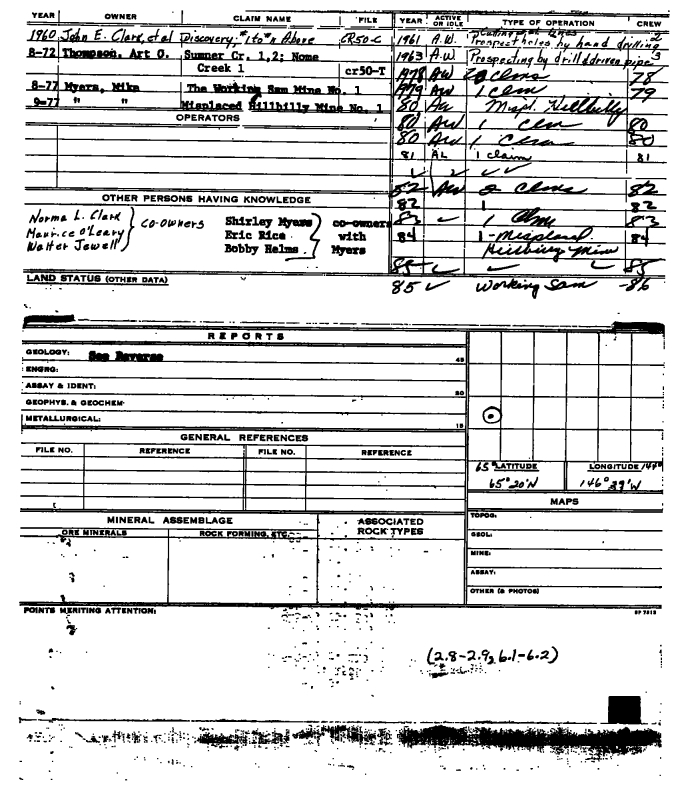 YEAR OWNER CLAIM NAME FILE YEAR ACTIVE OR IDLE TYPE OF OPERATION CREW
1960 John E. Clark, et al Discovery, #1 to #n Above CR50-C 1961 A.W. Prospect holes by hand drilling 2
8-72 Thompson, Art O. Sumner Cr. 1,2; Nome 1963 A.W. Prospecting by drill & driven pipe 3
Creek 1 cr50-T 1978 AW 2 clms 78
8-77 Myers, Mike The Working Sam Mine No. 1 1979 AW 1 clm 79
9-77 " " Misplaced Hillbilly Mine No. 1 80 AW Mispl. Hillbilly
OPERATORS
80 AW 1 clm 80
80 AW 1 Clm 80
81 AL 1 claim 81
82 AW 2 Clms 82
OTHER PERSONS HAVING KNOWLEDGE
82 1 82
Norma L. Clark
Maurice O'Leary
Walter Jewell
co-owners
Shirley Myers
Eric Rice
Bobby Helms
co-owners
with
Myers
83 1 Clm 83
84 1-Misplaced 84
Hillbilly Mine
85 85
LAND STATUS (OTHER DATA)
85 Working Sam -86
REPORTS
GEOLOGY: See Reverse 45
ENGRG:
ASSAY & IDENT: 30
GEOPHYS. & GEOCHEM.
METALLURGICAL: 15
GENERAL REFERENCES
FILE NO. REFERENCE FILE NO. REFERENCE
65° LATITUDE LONGITUDE 147°
65°20'N 146°39'W
MAPS
MINERAL ASSEMBLAGE
ORE MINERALS ROCK FORMING, ETC.
ASSOCIATED
ROCK TYPES
TOPOG:
GEOL:
MINE:
ASSAY:
OTHER (& PHOTOS)
POINTS MERITING ATTENTION:
(2.8-2.9, 6.1-6.2)